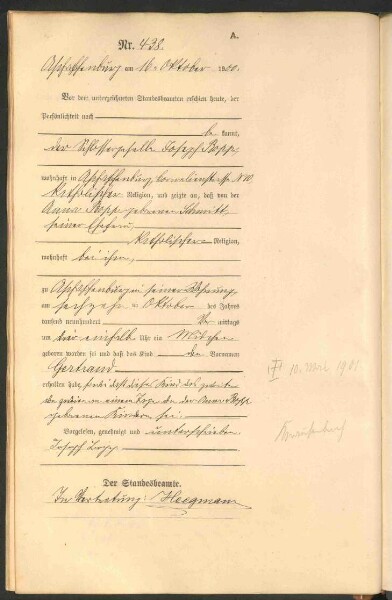 A.
Nr. 438.
Aschaffenburg am 16. Oktober 1900.
Vor dem unterzeichneten Standesbeamten erschien heute, der
Persönlichkeit nach
be kannt,
der Schlossergeselle Joseph Bopp,
wohnhaft in Aschaffenburg, Corneliensstraße N 10,
katholischer Religion, und zeigte an, daß von der
Anna Bopp geborenen Schmitt,
seiner Ehefrau,
katholischer Religion,
wohnhaft bei ihm,
zu Aschaffenburg in seiner Wohnung
am sechzehn ten Oktober des Jahres
tausend neunhundert Vor mittags
um ein halb Uhr ein Mädchen
geboren worden sei und daß das Kind den Vornamen
Gertraud
erhalten habe, daß dieses Kind das
in einem der Anna Bopp
geborenen Kindern sei.
Vorgelesen, genehmigt und unterschrieben
Joseph Bopp
Der Standesbeamte.
In Vertretung: Heegmann
10. 1901